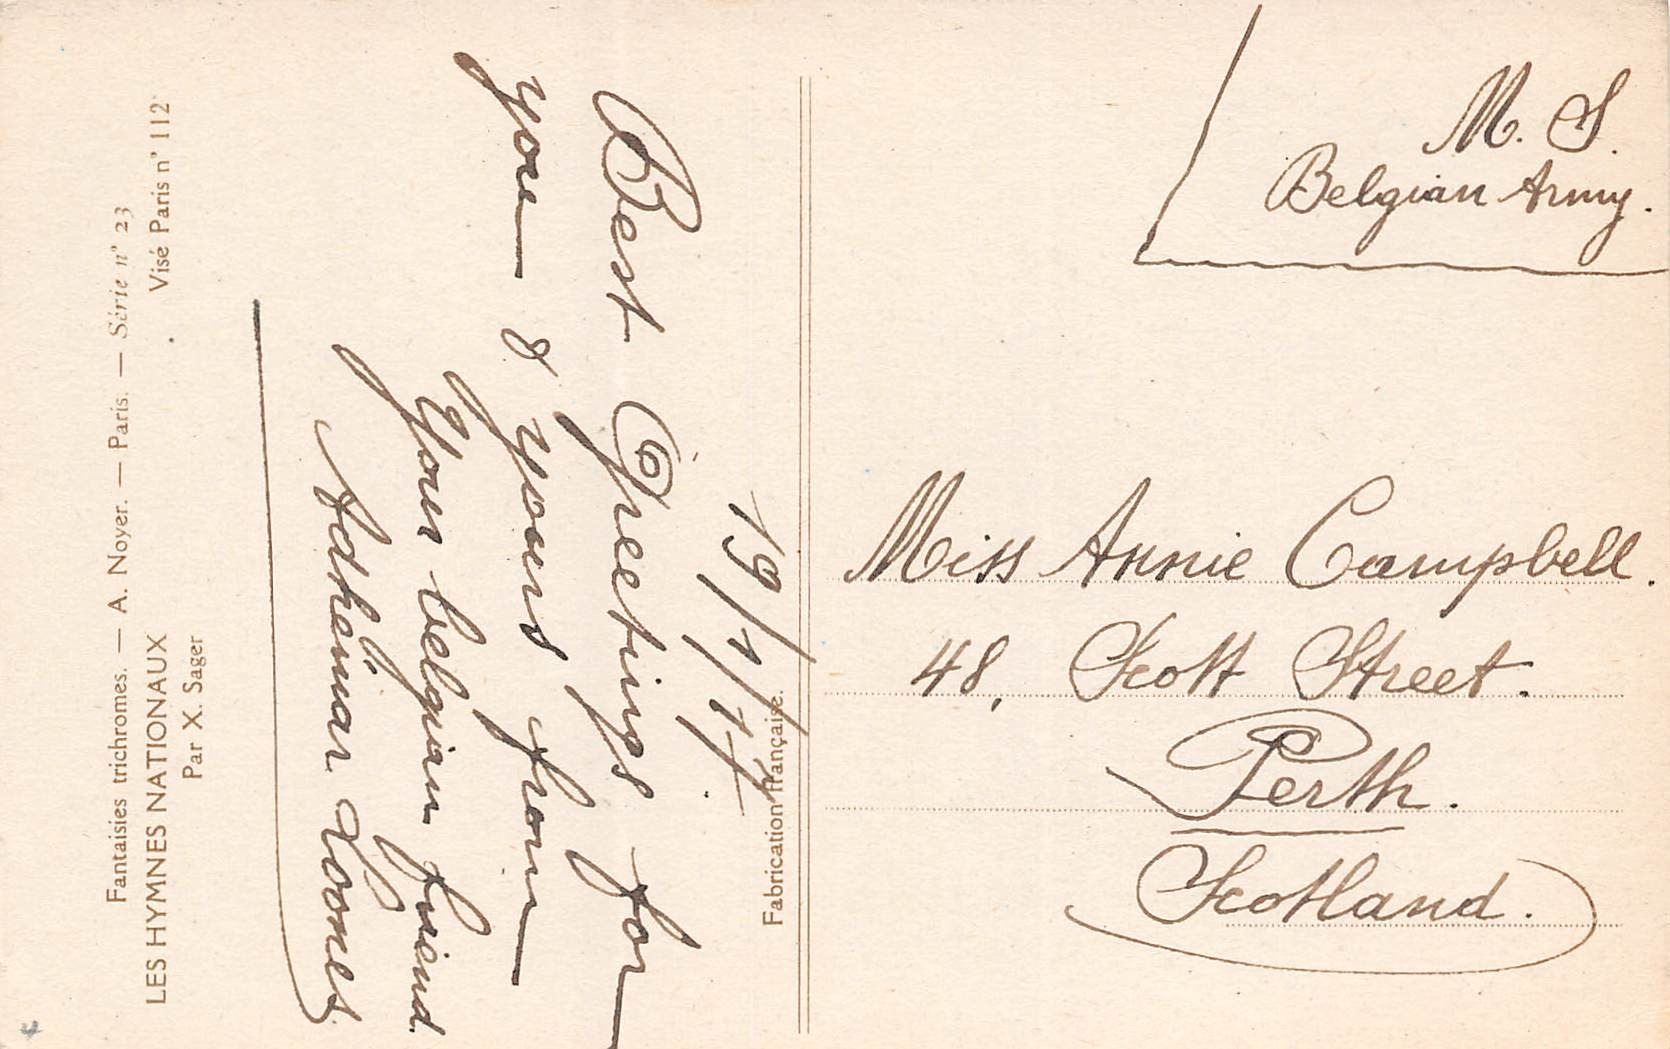 Fantaisies trichromes. — A. Noyer. — Paris. — Série n° 23
LES HYMNES NATIONAUX
Visé Paris n° 112
Par X. Sager
19/1/17.
Best Greetings for
you & yours from
Your belgian friend.
Adhémar
Fabrication française.
M. S.
Belgian Army.
Miss Annie Campbell.
48, Scott Street.
Perth.
Scotland.